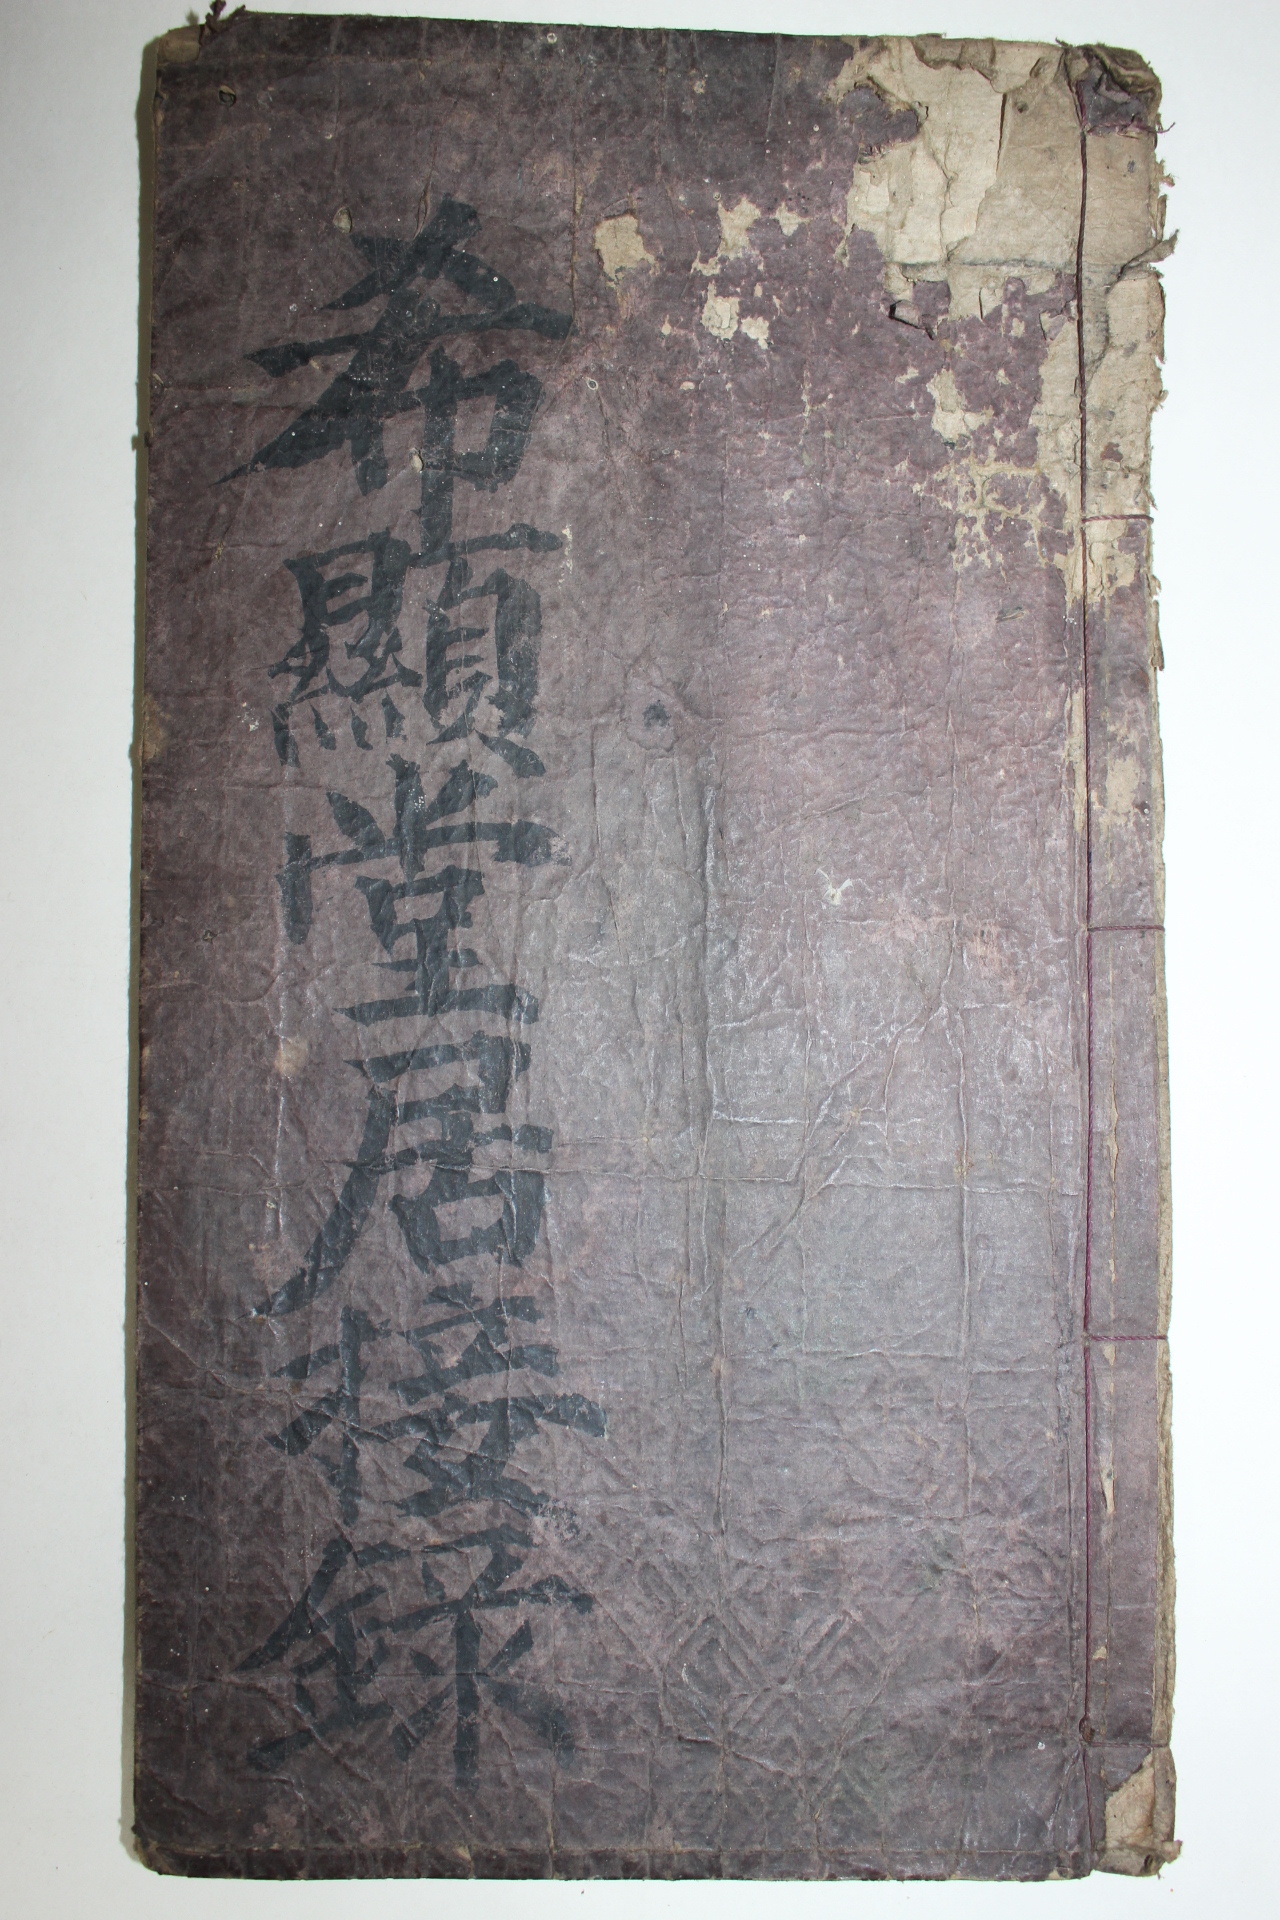 希顯堂居接录